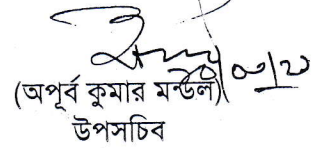 (অপূর্ব কুমার মন্ডল)
উপসচিব